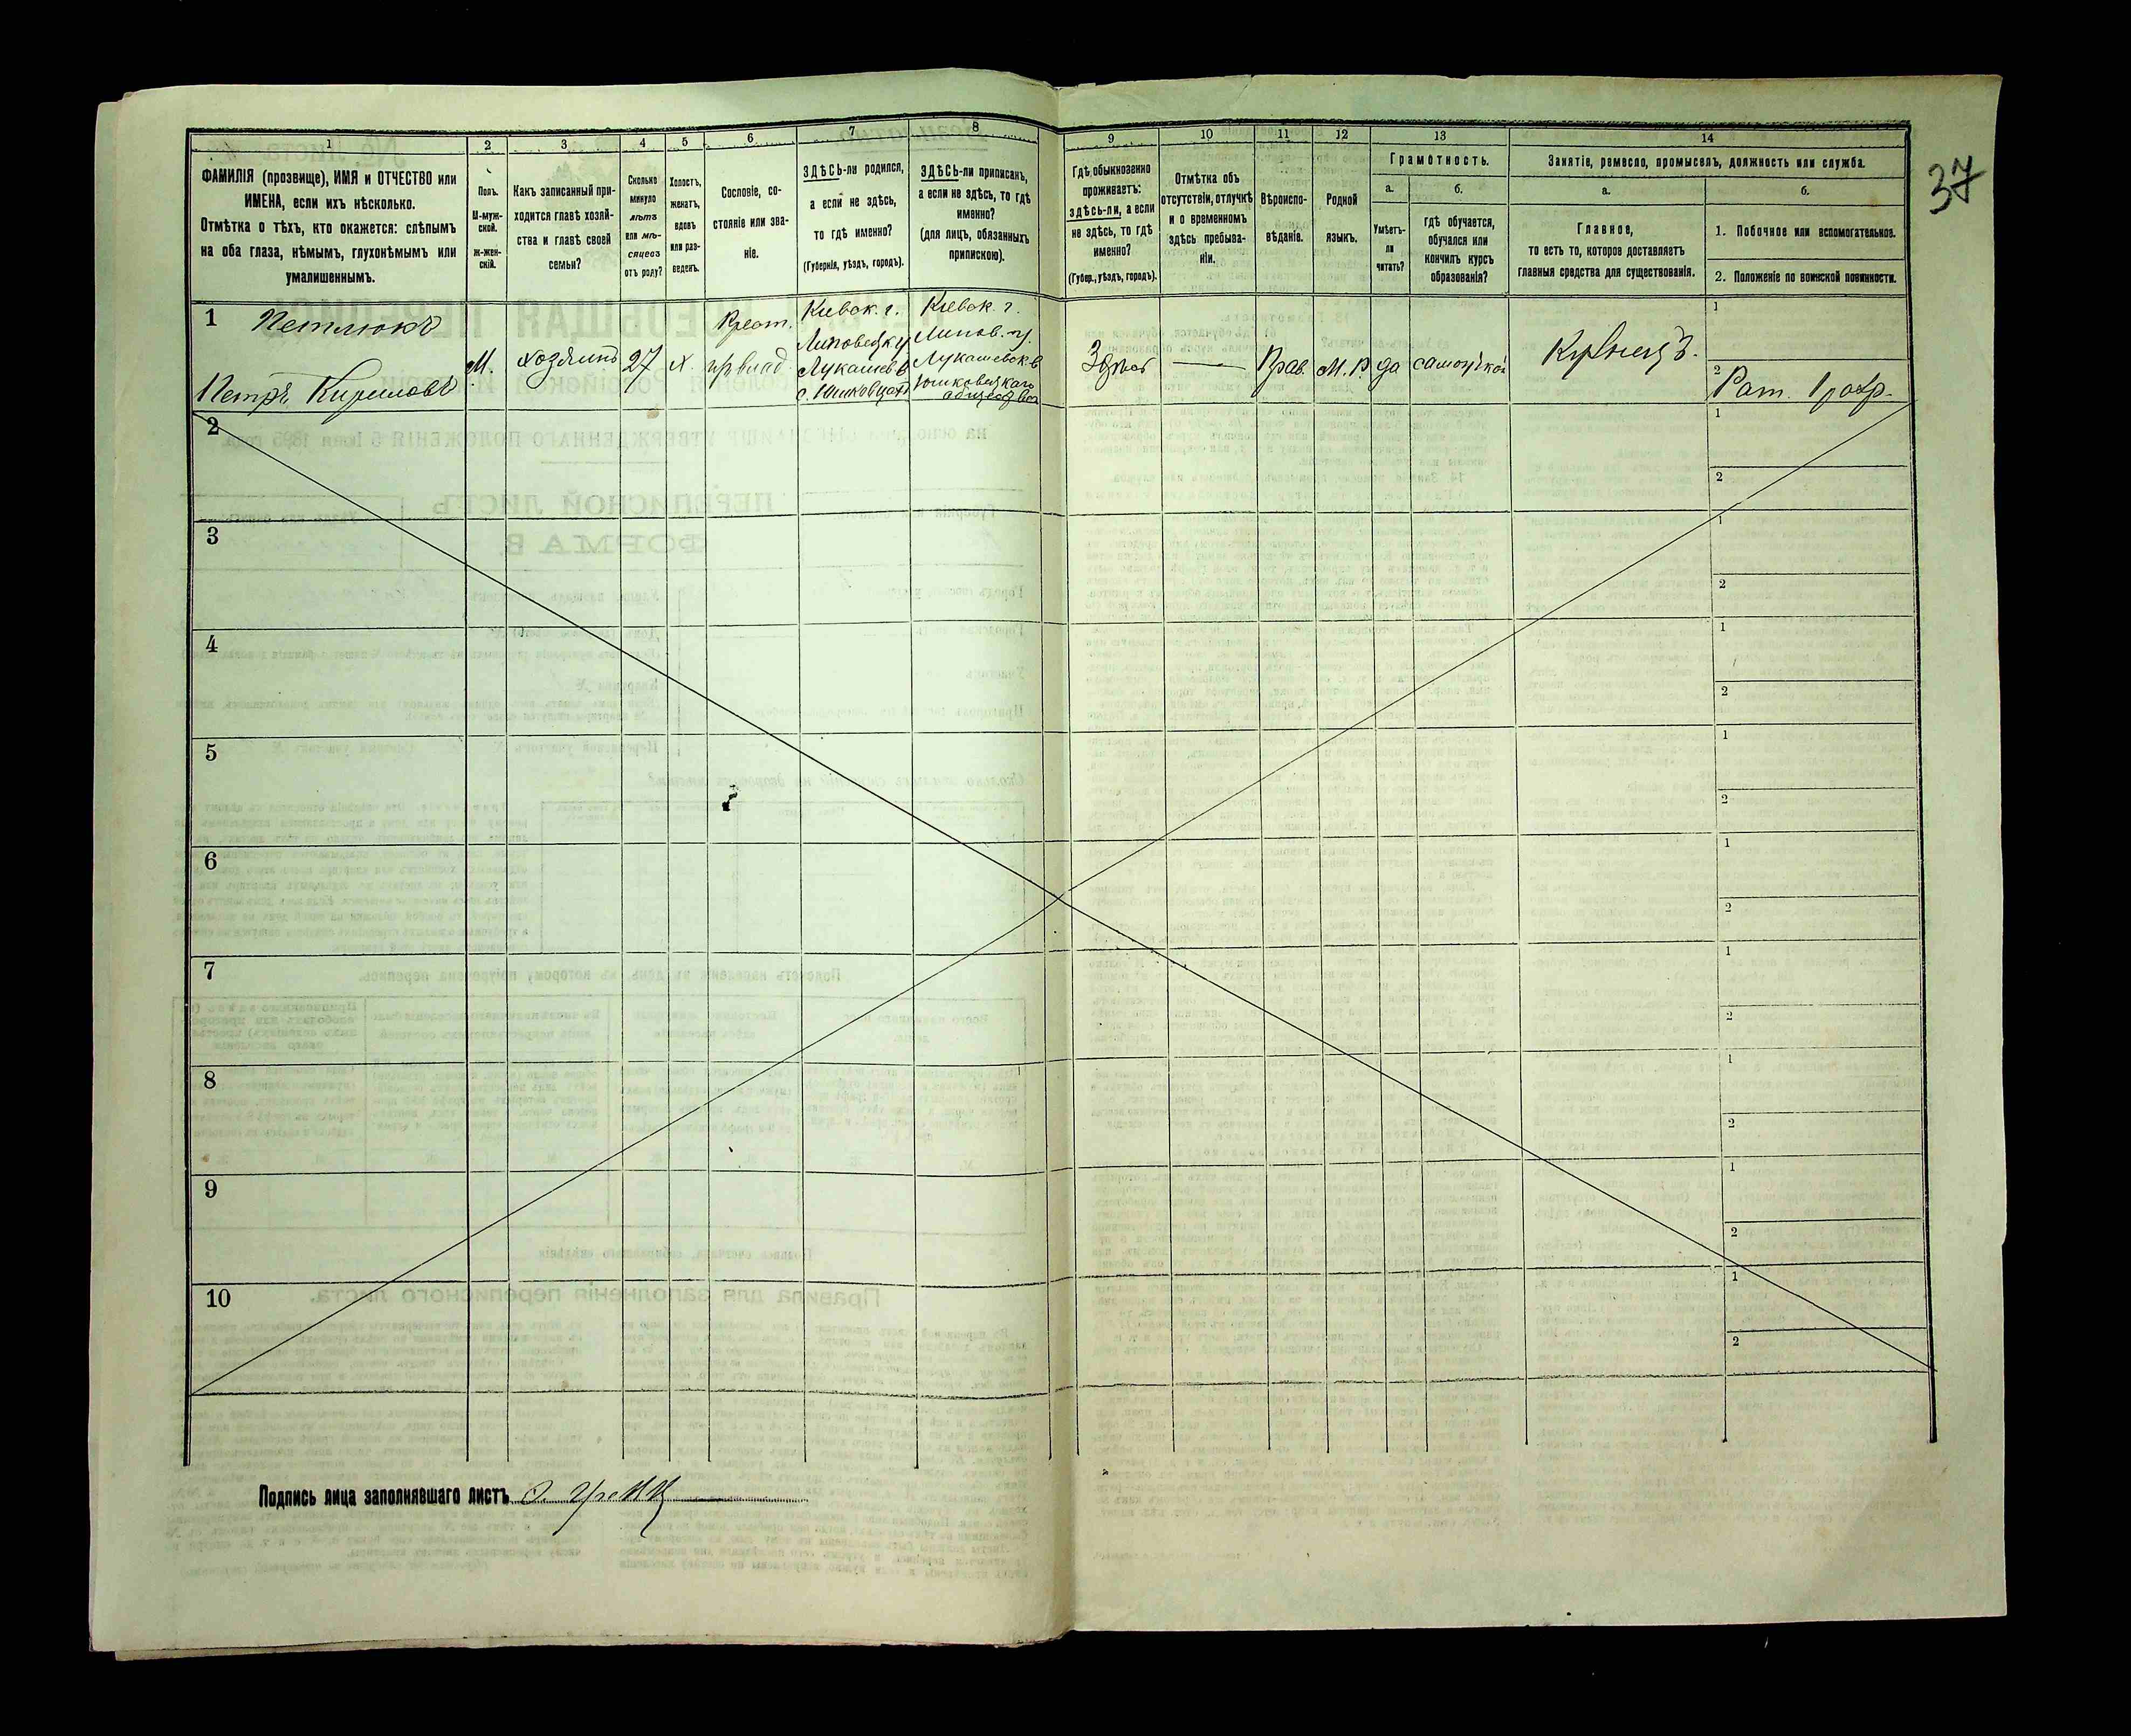 37
1 2 3 4 5 6 7 8 9 10 11 12 13 14
ФАМИЛІЯ (прозвище), ИМЯ и ОТЧЕСТВО или
ИМЕНА, если ихъ нѣсколько.
Отмѣтка о тѣхъ, кто окажется: слѣпымъ
на оба глаза, нѣмымъ, глухонѣмымъ или
умалишеннымъ.
Полъ.
М-муж-
ской.
Ж-жен-
скій.
Какъ записанный при-
ходится главѣ хозяй-
ства и главѣ своей
семьи?
Сколько
минуло
лѣтъ
или мѣ-
сяцевъ
отъ роду?
Холостъ,
женатъ,
вдовъ
или раз-
веденъ.
Сословіе, со-
стояніе или зва-
ніе.
ЗДѢСЬ-ли родился,
а если не здѣсь,
то гдѣ именно?
(Губернія, уѣздъ, городъ).
ЗДѢСЬ-ли приписанъ,
а если не здѣсь, то гдѣ
именно?
(для лицъ, обязанныхъ
припискою).
Гдѣ обыкновенно
проживаетъ:
здѣсь-ли, а если
не здѣсь, то гдѣ
именно?
(Губер., уѣздъ, городъ).
Отмѣтка объ
отсутствіи, отлучкѣ
и о временномъ
здѣсь пребыва-
ніи.
Вѣроиспо-
вѣданіе.
Родной
языкъ.
Грамотность.
а.
Умѣетъ-
ли
читать?
б.
гдѣ обучается,
обучался или
кончилъ курсъ
образованія?
Занятіе, ремесло, промыселъ, должность или служба.
а.
Главное,
то есть то, которое доставляетъ
главныя средства для существованія.
б.
1. Побочное или вспомогательное.
2. Положеніе по воинской повинности.
1
Петлюкъ
Петръ Кириловъ
М.
хозяинъ
27
х.
Крест.
Кіевск. г.
Кіевск. г.
Липов. у.
общества
Здѣсь
—
Прав.
М. Р.
да
1
2
Рат. 1 разр.
2
1
2
3
1
2
4
1
2
5
1
2
6
1
2
7
1
2
8
1
2
9
1
2
10
1
2
Подпись лица заполнявшаго листъ